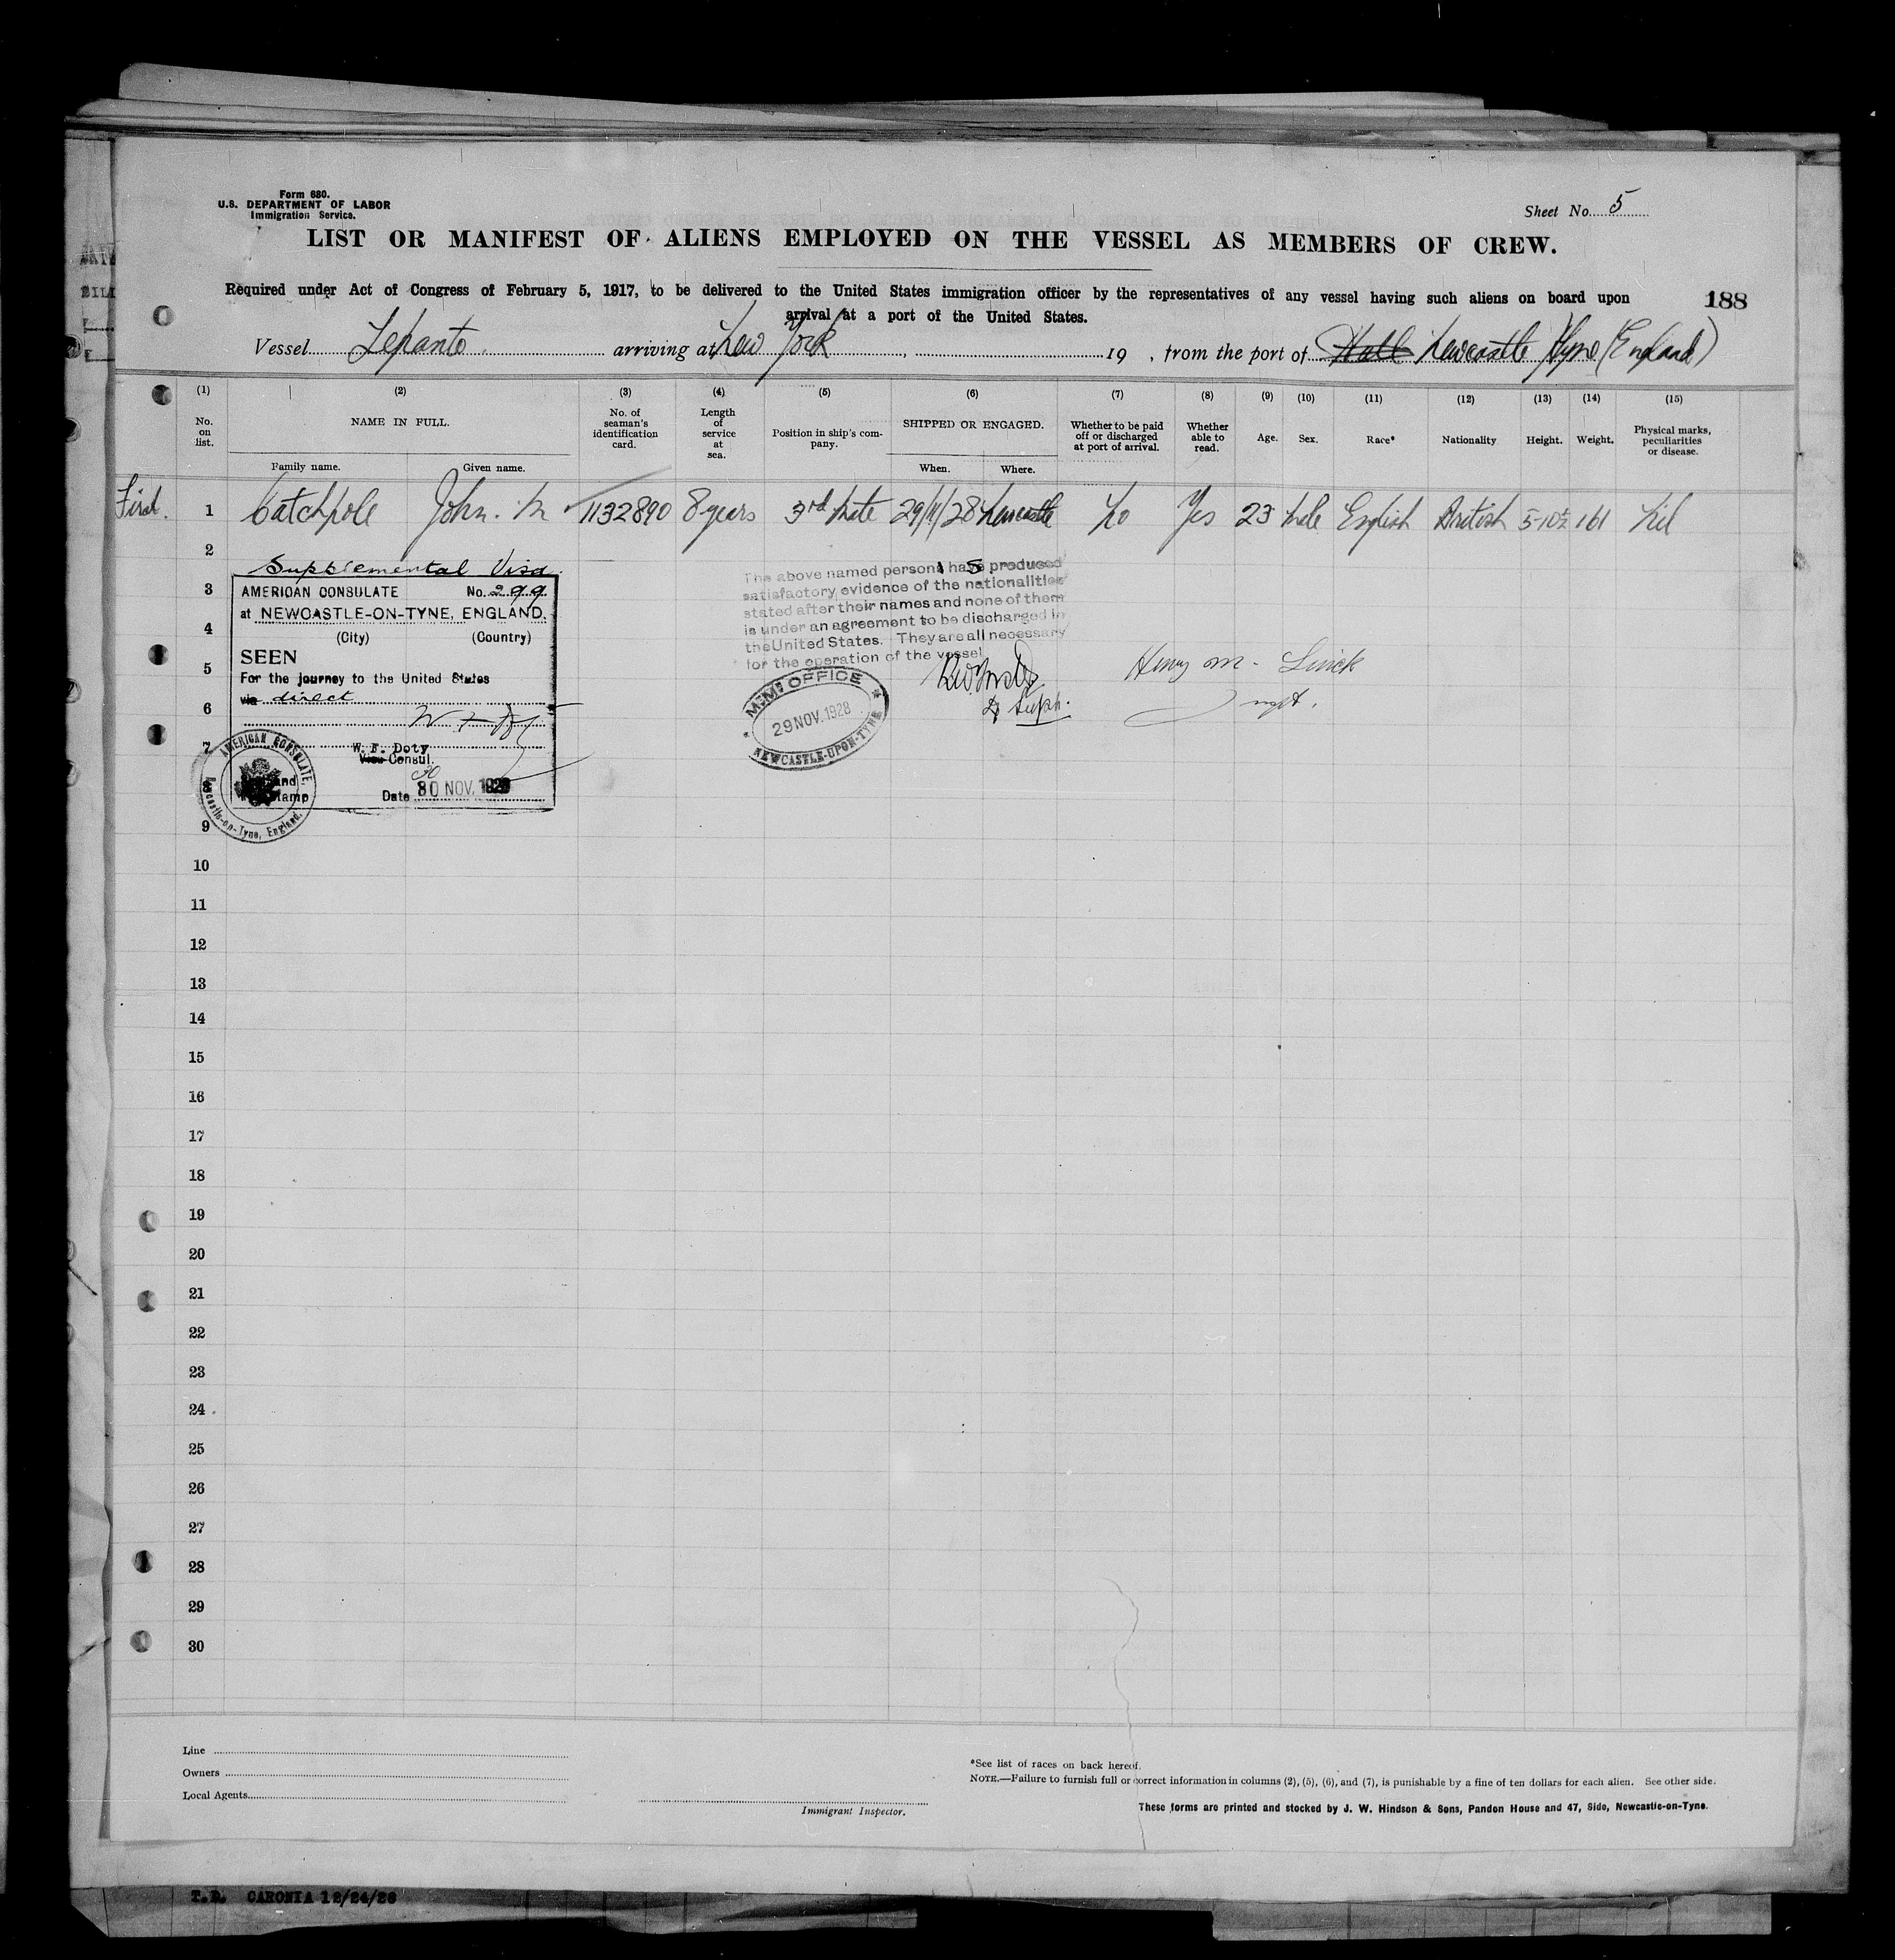 Form 680.
U.S. DEPARTMENT OF LABOR
Immigration Service.
Sheet No. 5
LIST OR MANIFEST OF ALIENS EMPLOYED ON THE VESSEL AS MEMBERS OF CREW.
Required under Act of Congress of February 5, 1917, to be delivered to the United States immigration officer by the representatives of any vessel having such aliens on board upon
arrival at a port of the United States.
188
Vessel Lepanto arriving at New York, 19 , from the port of Hull Newcastle Tyne (England)
(1) (2) (3) (4) (5) (6) (7) (8) (9) (10) (11) (12) (13) (14) (15)
No. on list. NAME IN FULL. No. of seaman's identification card. Length of service at sea. Position in ship's company. SHIPPED OR ENGAGED. Whether to be paid off or discharged at port of arrival. Whether able to read. Age. Sex. Race* Nationality Height. Weight. Physical marks, peculiarities or disease.
Family name. Given name. When. Where.
First. 1 Catchpole John. M 1132890 8 years 3rd Mate 29/11/28 Newcastle No Yes 23 Male English British 5-10½ 161 Nil
2
Supplemental Visa.
3
AMERICAN CONSULATE No. 299
at NEWCASTLE-ON-TYNE, ENGLAND.
(City) (Country)
4
SEEN
5
For the journey to the United States
via direct
6
7
W. F. Doty
Vice Consul.
Date 30 NOV. 1928
AMERICAN CONSULATE,
Newcastle-on-Tyne, England.
The above named person has produced
satisfactory evidence of the nationalities
stated after their names and none of them
is under an agreement to be discharged in
the United States. They are all necessary
for the operation of the vessel
D Supt.
M.M. OFFICE
29 NOV. 1928
NEWCASTLE-UPON-TYNE
Henry M.
8
9
10
11
12
13
14
15
16
17
18
19
20
21
22
23
24
25
26
27
28
29
30
Line
Owners
Local Agents
Immigrant Inspector.
*See list of races on back hereof.
NOTE.—Failure to furnish full or correct information in columns (2), (5), (6), and (7), is punishable by a fine of ten dollars for each alien. See other side.
These forms are printed and stocked by J. W. Hindson & Sons, Pandon House and 47, Side, Newcastle-on-Tyne.
T.D. CARONIA 12/24/28